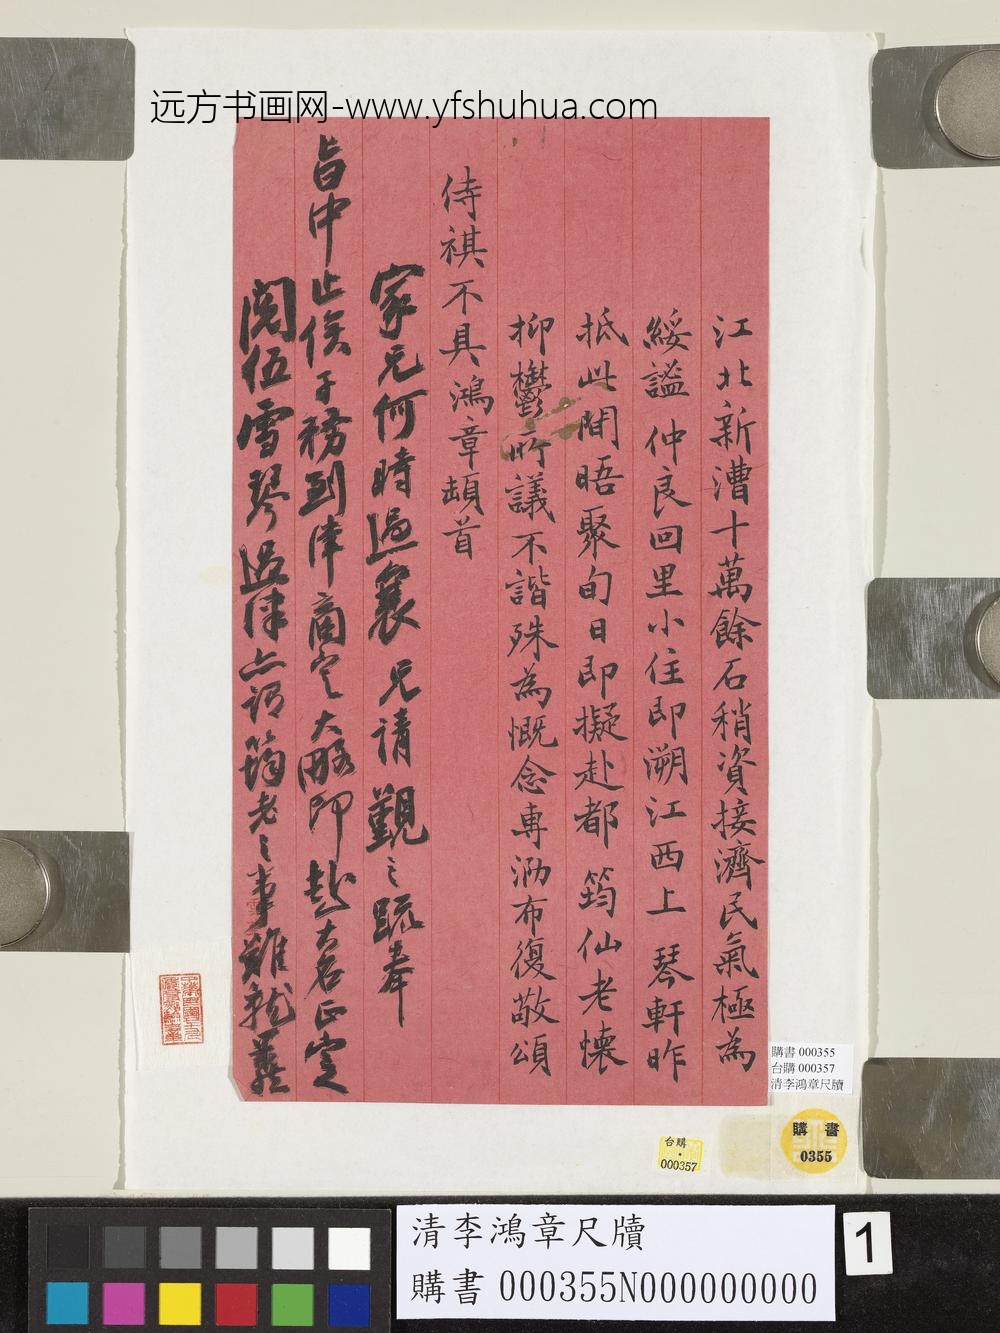 远方书画网-www.yfshuhua.com
江北新漕十萬餘石稍資接濟民氣極為
綏謐仲良回里小住即溯江西上琴軒昨
抵此間晤聚旬日即擬赴都筠仙老懷
抑鬱所議不諧殊為慨念專泐布復敬頌
侍祺不具鴻章頓首
家兄何時過襄兄請覲之疏奉
旨中止俟子務到津商定大略即赴大名正定
閱伍雪琴過津亦謂筠老之事難
購書 000355
台購 000357
清李鴻章尺牘
購書
0355
台購
000357
清李鴻章尺牘
購書 000355N000000000
1